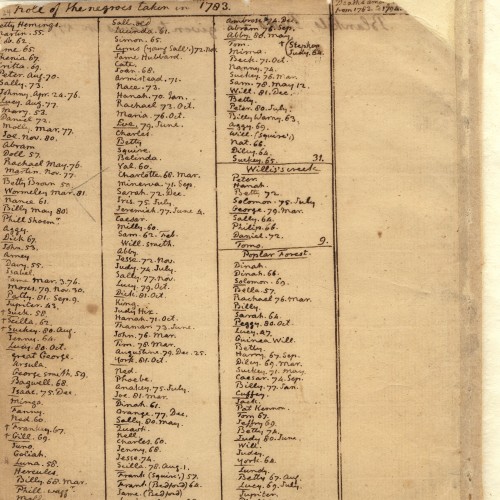 Roll of the negroes taken in 1783.
Betty Hemings.
Martin. 55.
62.
65.
67.
Critta. 69.
Peter. Aug. 70.
Sally. 73.
Johnny. Apr. 24. 76.
Lucy. Aug. 77.
Mary. 53.
Daniel. 72.
Molly. Mar. 77.
Joe. Nov. 80.
Abram
Doll. 57.
Rachael May. 76.
Martin. Nov. 77.
Betty Brown 59.
Wormeley Mar. 81.
Nance 61.
Billy May 80.
Phill Shoem.
Aggy.
Dick 67.
John. 53.
Amey
Davy. 55.
Isabel.
Jame Mar. 3. 76.
Moses. 79. Nov. 30.
Patty. 81. Sep. 9.
Jupiter. 43
+ Suck. 58.
+ Scilla. 62.
+ Suckey. 80. Aug.
Jenny. 64.
Lucy. 80. Oct.
great George.
Ursula.
George smith. 59.
Bagwell. 68.
Isaac. 75. Dec.
Mingo.
Fanny.
Ned. 60.
+ Frankey. 67.
+ Gill. 69.
Juno.
Goliah.
Luna. 58.
Hercules.
Billy 68. Mar.
Phill. wagg
Sall. old
Lucinda. 61.
Simon. 65.
Cyrus (young Sall's) 72. Nov.
Jame Hubbard.
Cate.
Joan. 68.
Armistead. 71.
Nace. 73.
Hanah. 70. Jan.
Rachael 73. Oct.
Maria. 76. Oct.
Eve. 79. June.
Charles
Betty
Squire.
Belinda.
Val. 60.
Charlotte. 68. Mar.
Minerva. 71. Sep.
Sarah. 72. Dec.
Iris. 75. July.
Jeremiah. 77. June 4.
Caesar.
Milly. 60.
Sam. 62. Feb.
Will. smith.
Abby
Jesse. 72. Nov.
Judy. 74. July
Sally. 77. Nov.
Lucy. 79. Oct.
Dick. 81. Oct.
King.
Judy Hix.
Hanah. 71. Oct.
Thamar 73. June.
John. 76. Mar.
Tim. 78. Mar.
Augustine. 79. Dec. 25.
York. 81. Oct.
Ned.
Phoebe.
Anakey. 75. July.
Joe. 81. Mar.
Dinah. 61.
Orange. 77. Dec.
Sally. 80. May.
Quash.
Nell.
Charles. 60.
Jenny. 68.
Jesse. 74.
Scilla. 78. Aug. 1.
Frank (Squire's) 57.
Frank (Bedford) 62.
Jame. (Bedford)
Ambrose 74. Dec.
Abram 78. Sep.
Abby. 80. May
Tom.
Mima.
Bech. 71. Oct.
Nanny. 74.
Suckey. 76. Mar.
Sam. 78. May 12.
Will. 81. Dec.
Betty.
Peter. 80. July.
Billy Warny. 63.
Aggy. 69.
Will (Squire's)
Nat. 66.
Dilcy. 64.
Suckey. 65. 31.
Willis's creek
Peter.
Hanah.
Betty 72.
Solomon. 75. July
George. 79. Mar.
Sally. 64.
Philip. 66.
Daniel. 72.
Tomo. 9.
Poplar Forest.
Dinah.
Dinah. 66.
Solomon. 69.
Bella. 57.
Rachael 76. Mar.
Billy.
Sarah. 64.
Peggy. 80. Oct.
Lucy. 47.
Guinea Will.
Betty.
Harry. 67. Sep.
Dilcy. 69. Mar.
Suckey. 71. May.
Caesar. 74. Sep.
Billy. 77. Jan.
Cuffey.
Jack.
Pat Hernon.
Tom. 67.
Jeffry 69.
Betty. 74.
Judy 80. June.
Will.
Judey.
York. 64.
Lundy.
Betty 67. Aug.
Lucy. 69. July.
Jupiter.
+ Stephen
Judy. 84.
from 1782 to 1794.